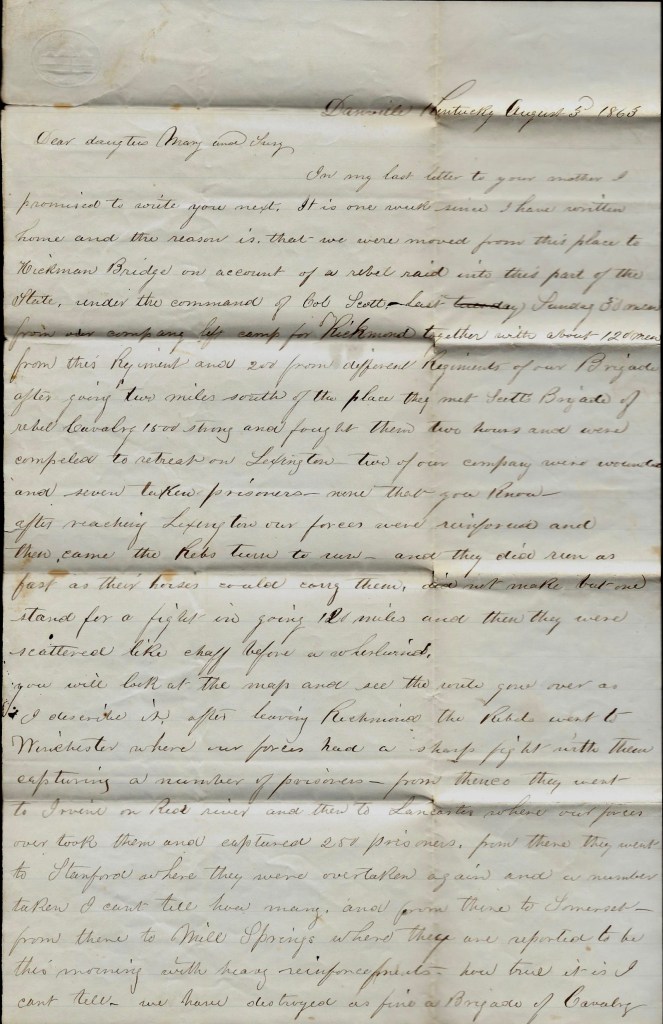 Danville Kentucky August 3d 1863
Dear daughters Mary and Susy
In my last letter to your mother I
promised to write you next. It is one week since I have written
home and the reason is, that we were moved from this place to
Hickman Bridge on account of a rebel raid into this part of the
State, under the command of Col Scott, last tuesday Sunday men
from our company left camp for Richmond together with about 120 men
from this Regiment and 200 from different Regiments of our Brigade
after going two miles south of the place they met Scotts Brigade of
rebel Cavalry 1500 strong and fought them two hours and were
compeled to retreat on Lexington – two of our company were wounded
and seven taken prisoners – none that you know –
after reaching Lexington our forces were reinforced and
then came the Rebs turn to run – and they did run as
fast as their horses could carry them, did not make but one
stand for a fight in going miles and then they were
scattered like chaff before a whirlwind.
you will look at the map and see the route gone over as
I describe it, after leaving Richmond the Rebels went to
Winchester where our forces had a sharp fight with them
capturing a number of prisoners – from thence they went
to Irvine on Red river and then to Lancaster where our forces
over took them and captured 250 prisoners, from there they went
to Stanford where they were overtaken again and a number
taken I cant tell how many, and from there to Somerset –
from there to Mill Springs where they are reported to be
this morning with heavy reinforcements – how true it is I
cant tell – we have destroyed as fine a Brigade of Cavalry